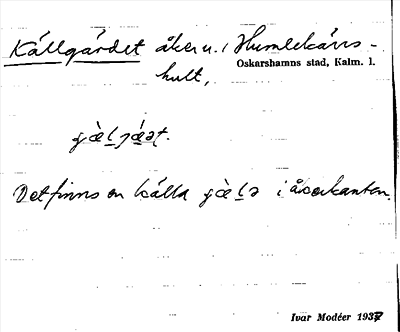 Källgärdet åker u. i Humlekärrs-
hult,
Oskarshamns stad, Kalm. l.
Det finns en källa i åkerkanten.
Ivar Modéer 1937